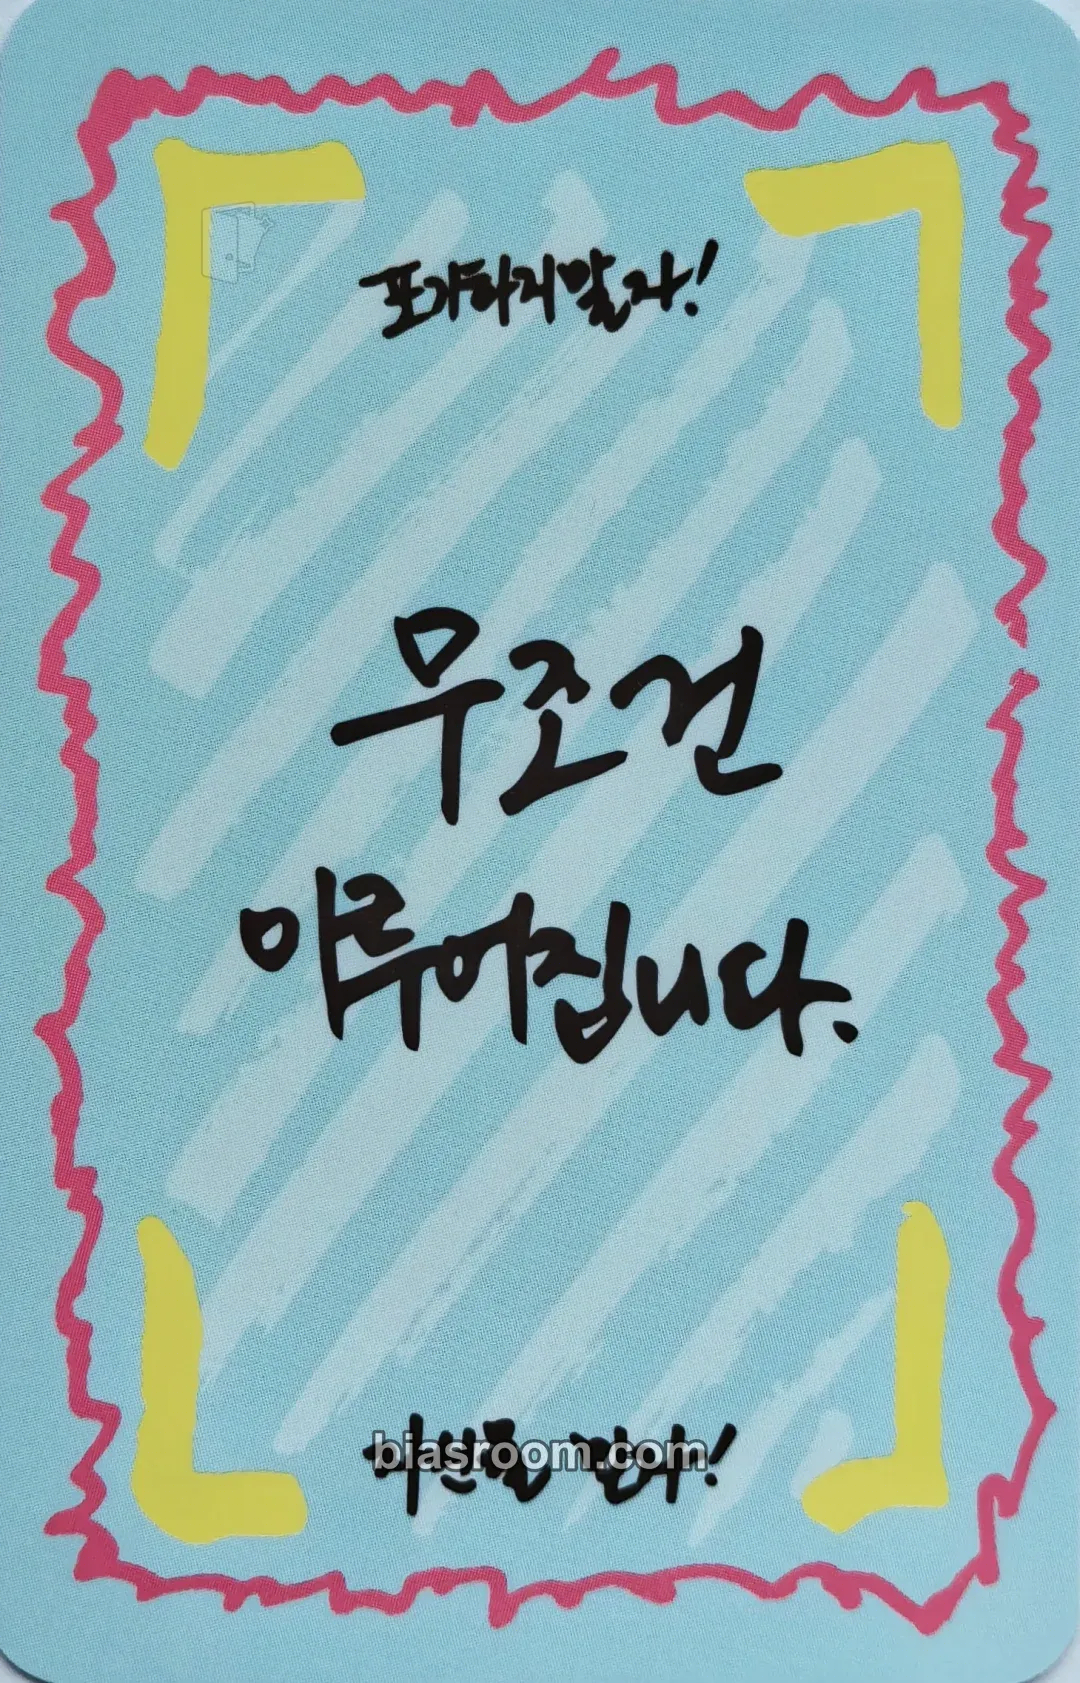 포기하지말자!
무조건
이루어집니다.
biasroom.com